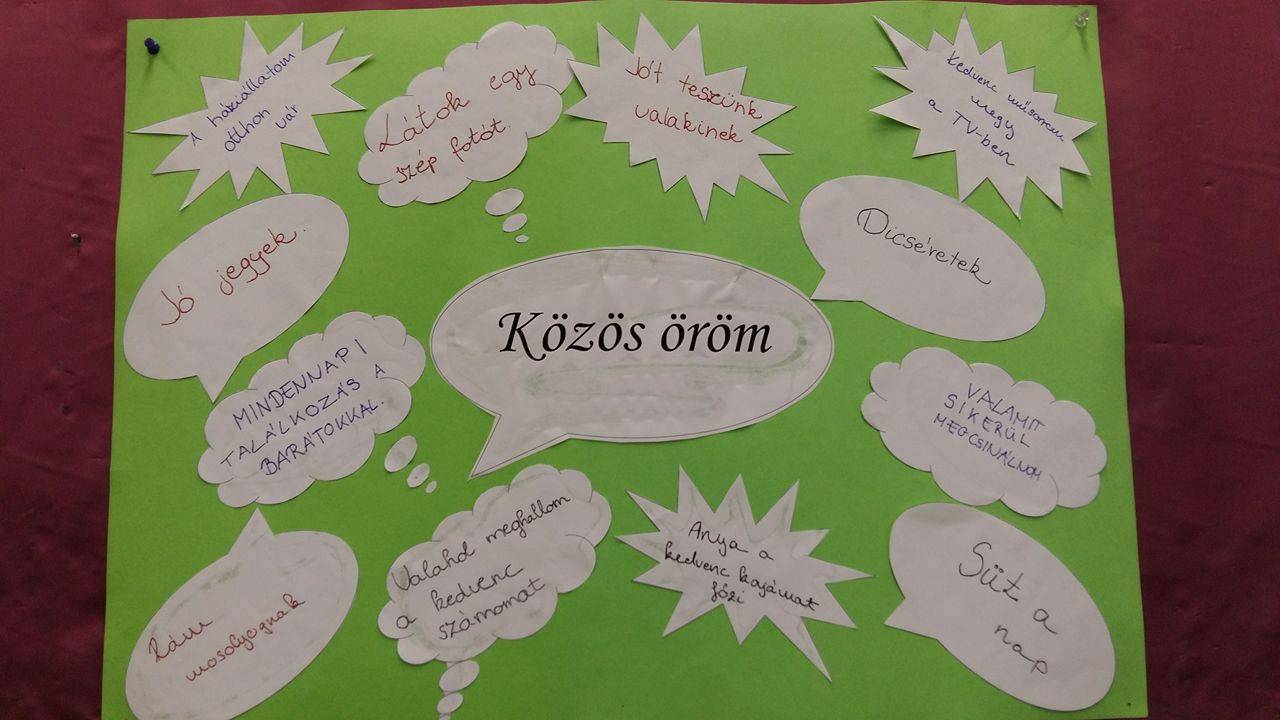 A háziállatom
otthon
vár
Látok egy
szép fotót.
Jót teszünk
valakinek
Kedvenc műsorom
megy
a TV-ben
Jó jegyek.
Dicséretek
Közös öröm
MINDENNAPI
TALÁLKOZÁS A
BARÁTOKKAL.
VALAMIT
SIKERÜL
MEGCSINÁLNOM
Rám
mosolyognak
Valahol meghallom
a kedvenc
számomat
Anya a
kedvenc kajámat
főzi
Süt a
nap